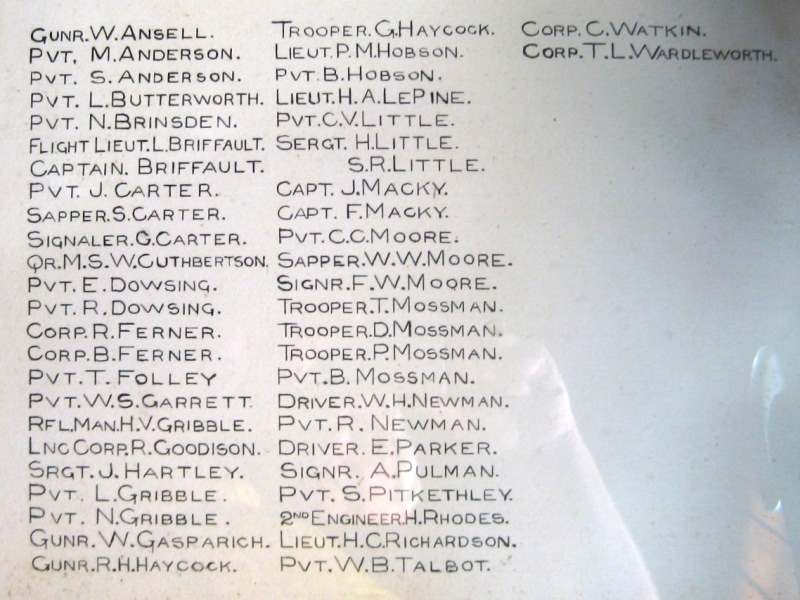 GUNR.W.ANSELL.
PVT. M.ANDERSON.
PVT. S.ANDERSON.
PVT. L.BUTTERWORTH.
PVT. N.BRINSDEN.
FLIGHT LIEUT.L.BRIFFAULT.
CAPTAIN. BRIFFAULT.
PVT. J. CARTER.
SAPPER.S.CARTER.
SIGNALER.G.CARTER.
QR.M.S.W.CUTHBERTSON.
PVT. E. DOWSING.
PVT. R. DOWSING.
CORP.R.FERNER.
CORP.B.FERNER.
PVT.T.FOLLEY
PVT.W.S.GARRETT.
RFL.MAN.H.V.GRIBBLE.
LNCCORP.R.GOODISON.
SRGT.J.HARTLEY.
PVT. L.GRIBBLE.
PVT. N.GRIBBLE.
GUNR.W.GASPARICH.
GUNR.R.H.HAYCOCK.
TROOPER.G.HAYCOCK.
LIEUT.P.M.HOBSON.
PVT.B.HOBSON.
LIEUT.H.A.LEPINE.
PVT.C.V.LITTLE.
SERGT. H.LITTLE.
S.R.LITTLE.
CAPT. J.MACKY.
CAPT. F.MACKY.
PVT.C.C.MOORE.
SAPPER.W.W.MOORE.
SIGNR.F.W.MOORE.
TROOPER.T.MOSSMAN.
TROOPER.D.MOSSMAN.
TROOPER.P.MOSSMAN.
PVT.B.MOSSMAN.
DRIVER.W.H.NEWMAN.
PVT.R.NEWMAN.
DRIVER.E.PARKER.
SIGNR. A.PULMAN.
PVT. S.PITKETHLEY.
2ND ENGINEER.H.RHODES.
LIEUT.H.C.RICHARDSON.
PVT.W.B.TALBOT.
CORP. C.WATKIN.
CORP.T.L.WARDLEWORTH.